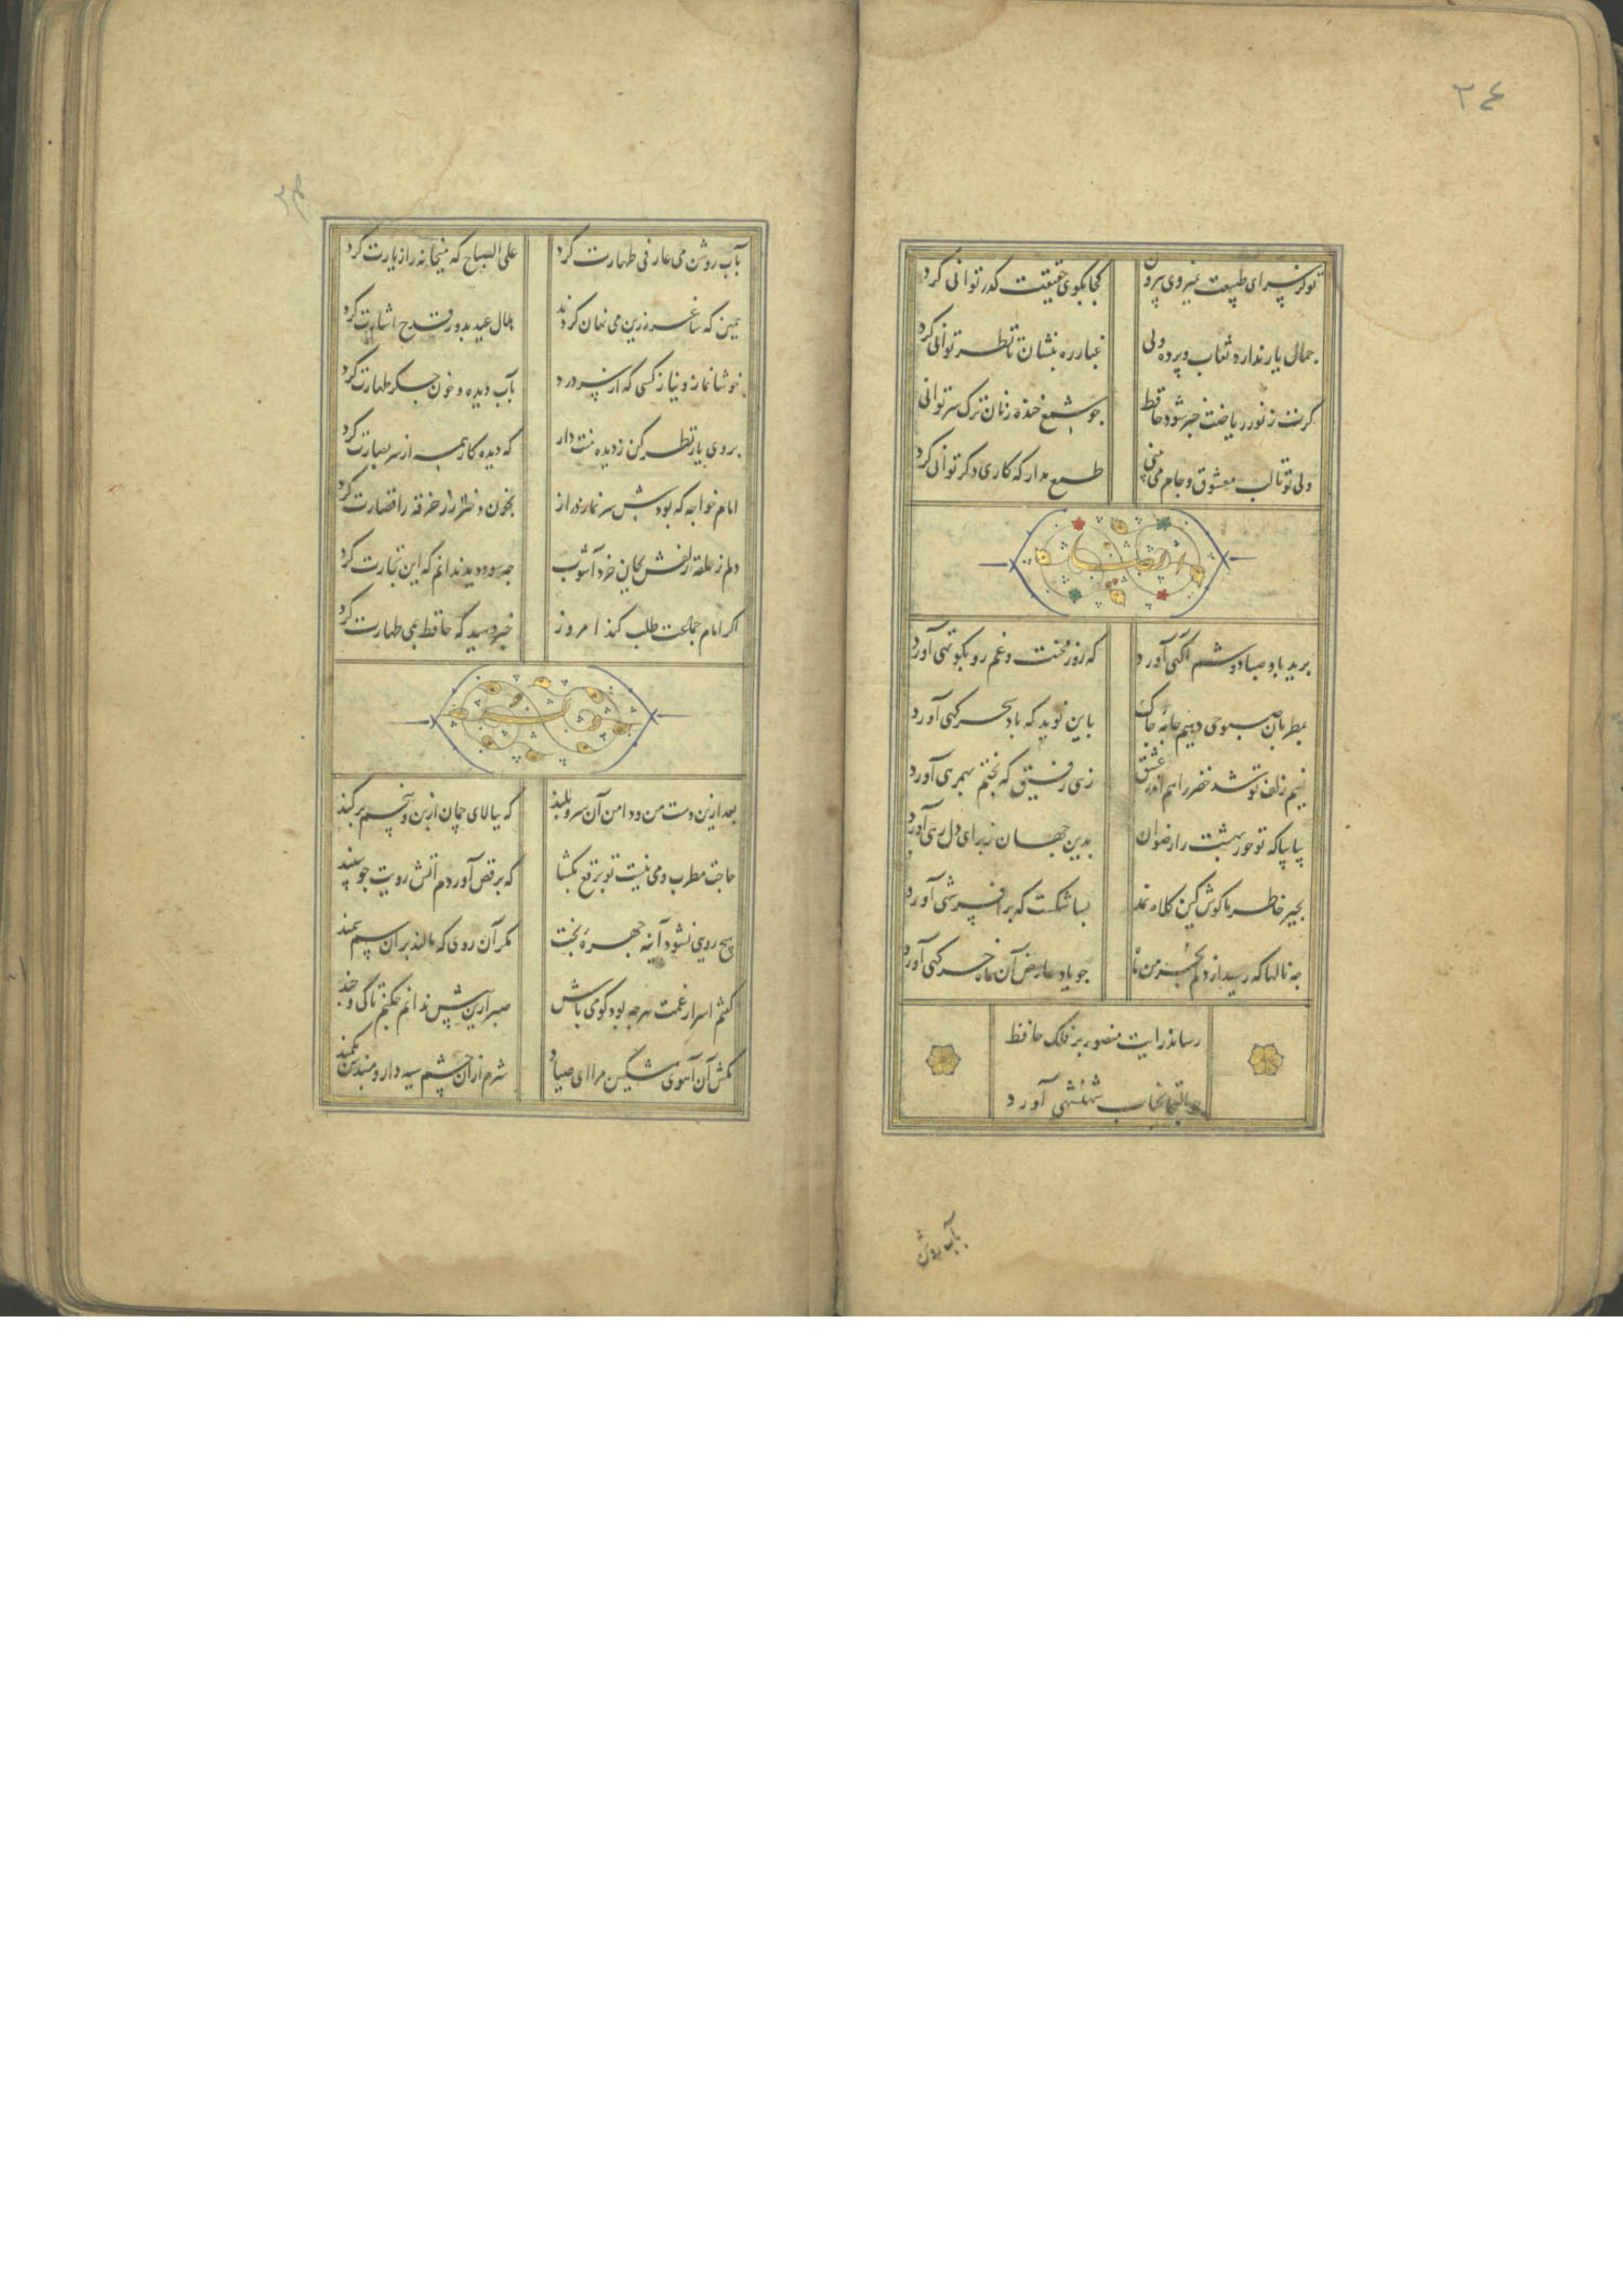 ٣٤
تو کز سرای طبیعت نمیروی بیرون کجا بکوی حقیقت کذر توانی کرد
جمال یار ندارد نقاب و پرده ولی غبار ره بنشان تا نظر توانی کرد
کرت ز نور ریاضت خبر شود حافظ جو شمع خنده زنان ترک سر توانی کرد
ولی تو تا لب معشوق و جام می طمع مدار که کاری دکر توانی کرد
ایضا
برید باد صبا دوشم آکهی آورد که روز محنت و غم رو بکوتهی آورد
بمطربان صبوحی دهیم جامه جاک باین نوید که باد سحر کهی آورد
نسیم زلف تو شد خضر راهم اندر عشق زهی رفیق که بختم بهمرهی آورد
بیا بیا که تو حور بهشت را رضوان بدین جهان ز برای دل رهی آورد
بجبر خاطر ما کوش کین کلاه نمد بسا شکست که بر افسر شهی آورد
جه نالها که رسید از دلم جو یاد عارض آن ماه خرکهی آورد
رساند رایت منصور بر فلک حافظ
التجا بجناب شهنشهی آورد
بآب روشن
بآب روشن می عارفی طهارت کرد علی الصباح که میخانه را زیارت کرد
همین که ساغر زرین می نهان کردند هلال عید بدور قدح اشارت کرد
خوشا نماز و نیاز کسی که از سر درد بآب دیده و خون جکر طهارت کرد
بروی یار نظر کن ز دیده منت دار که دیده کار همه از سر بصارت کرد
امام خواجه که بودش سر نماز دراز بخون دختر رز خرقه را قصارت کرد
دلم ز حلقه زلفش بجان خرد آشوب جه سود دید ندانم که این تجارت کرد
اکر امام جماعت طلب کند امروز خبر دهید که حافظ بمی طهارت کرد
بعد ازین دست من و دامن آن سرو بلند که ببالای جمان از بن و بیخم برکند
حاجت مطرب و می نیست تو برقع بکشا که برقص آوردم آتش رویت جو سپند
هیج رویی نشود آینه جهره بخت مکر آن روی که مالند بر آن سم سمند
کفتم اسرار غمت هرجه بود کومی باش صبر ازین بیش ندارم جکنم تا کی و جند
مکش آن آهوی مشکین مرا ای صیاد شرم از آن جشم سیه دار و مبندش بکمند